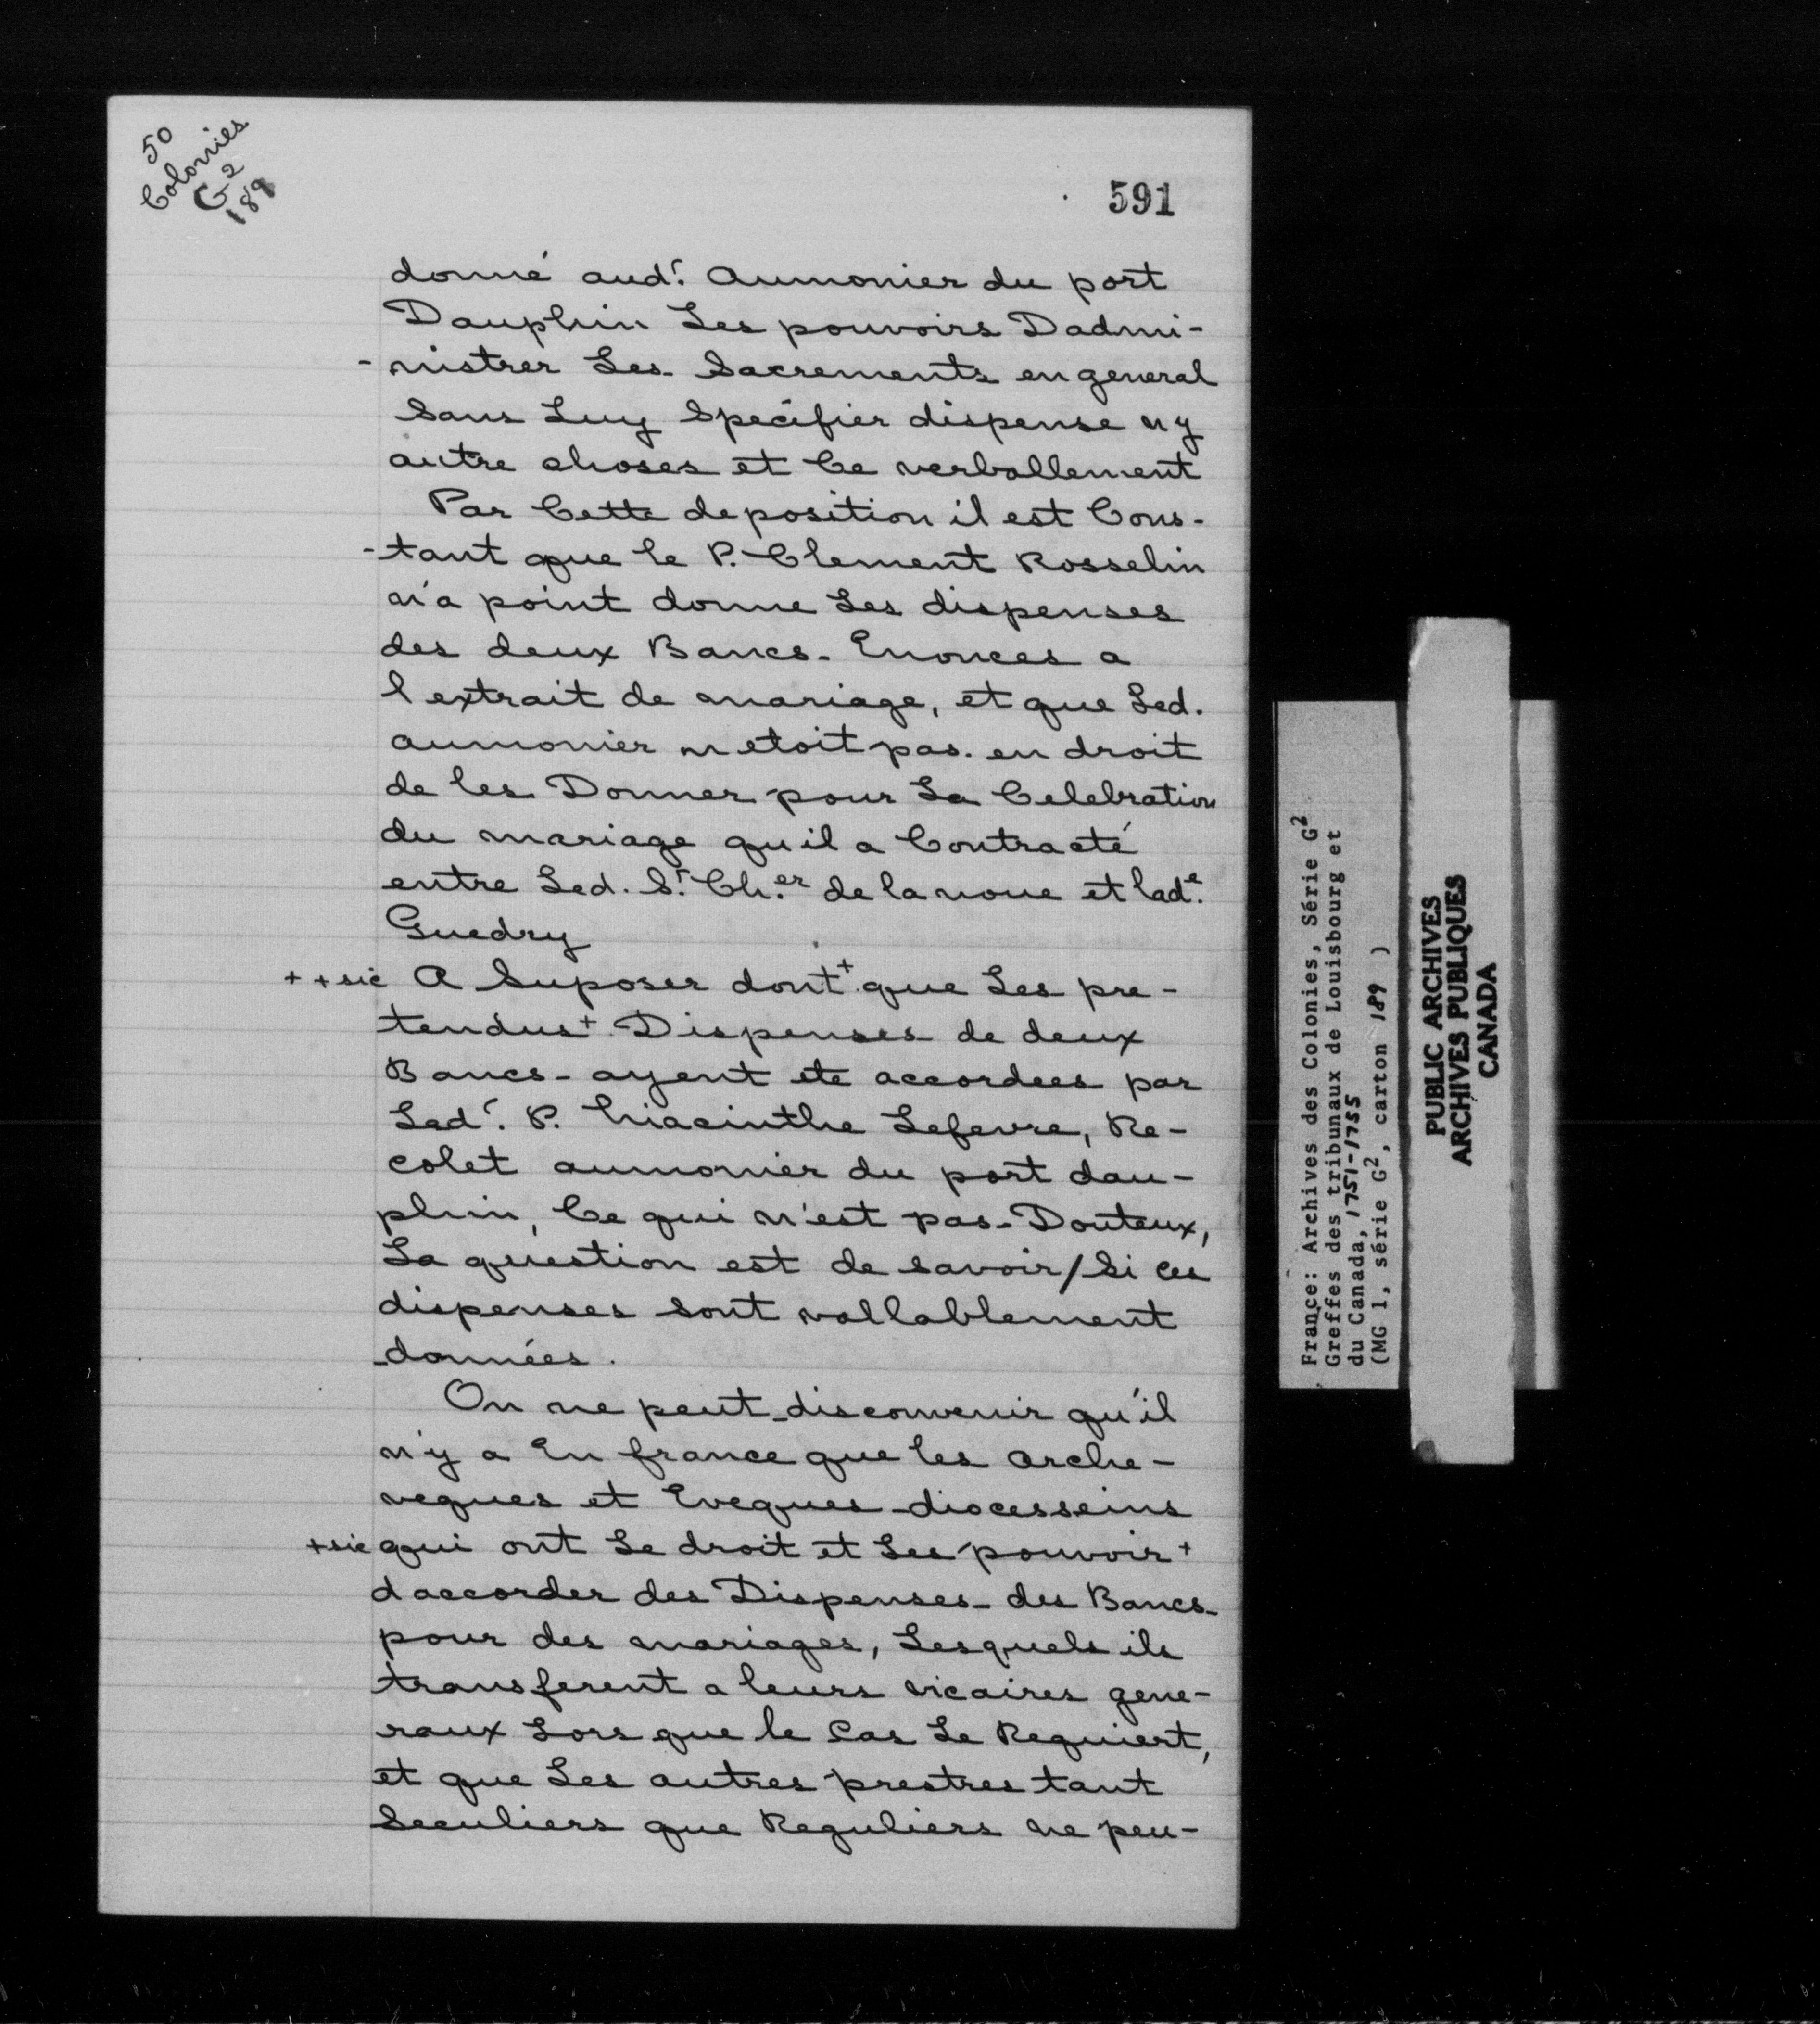 50
Colonies
G2
189
591
donné audt. Aumonier du port
Dauphin Les pouvoirs Dadmi-
-nistrer Les Sacrements en general
Sans Luy Specifier dispense ny
autre choses et Ce verballement
Par Cette deposition il est Cons-
-tant que le P. Clement Rosselin
n'a point donne Les dispenses
des deux Bancs Enonces a
l extrait de mariage, et que Led.
aumonier n etoit pas en droit
de les Donner pour La Celebration
du mariage qu il a Contracté
entre Led. Sr. Ch.er de la noue et lade.
Guedry
+ + sic A Suposer dont + que Les pre-
tendus + Dispenses de deux
Bancs ayent ete accordees par
Led t. P. hiacinthe Lefevre, Re-
colet aumonier du port dau-
phin, Ce qui n'est pas Douteux,
La question est de savoir/Si ces
dispenses sont vallablement
données.
On ne peut disconvenir qu'il
n'y a En france que les arche-
veques et Eveques diocesseins
+sic qui ont Le droit et Les pouvoir +
d accorder des Dispenses des Bancs
pour des mariages, Lesquels ils
transferent a leurs vicaires gene-
raux Lors que le Cas Le Requiert,
et que Les autres prestres tant
Seculiers que Reguliers ne peu-
France: Archives des Colonies, Série G2
Greffes des tribunaux de Louisbourg et
du Canada, 1751-1755
(MG 1, série G2, carton 189 )
PUBLIC ARCHIVES
ARCHIVES PUBLIQUES
CANADA